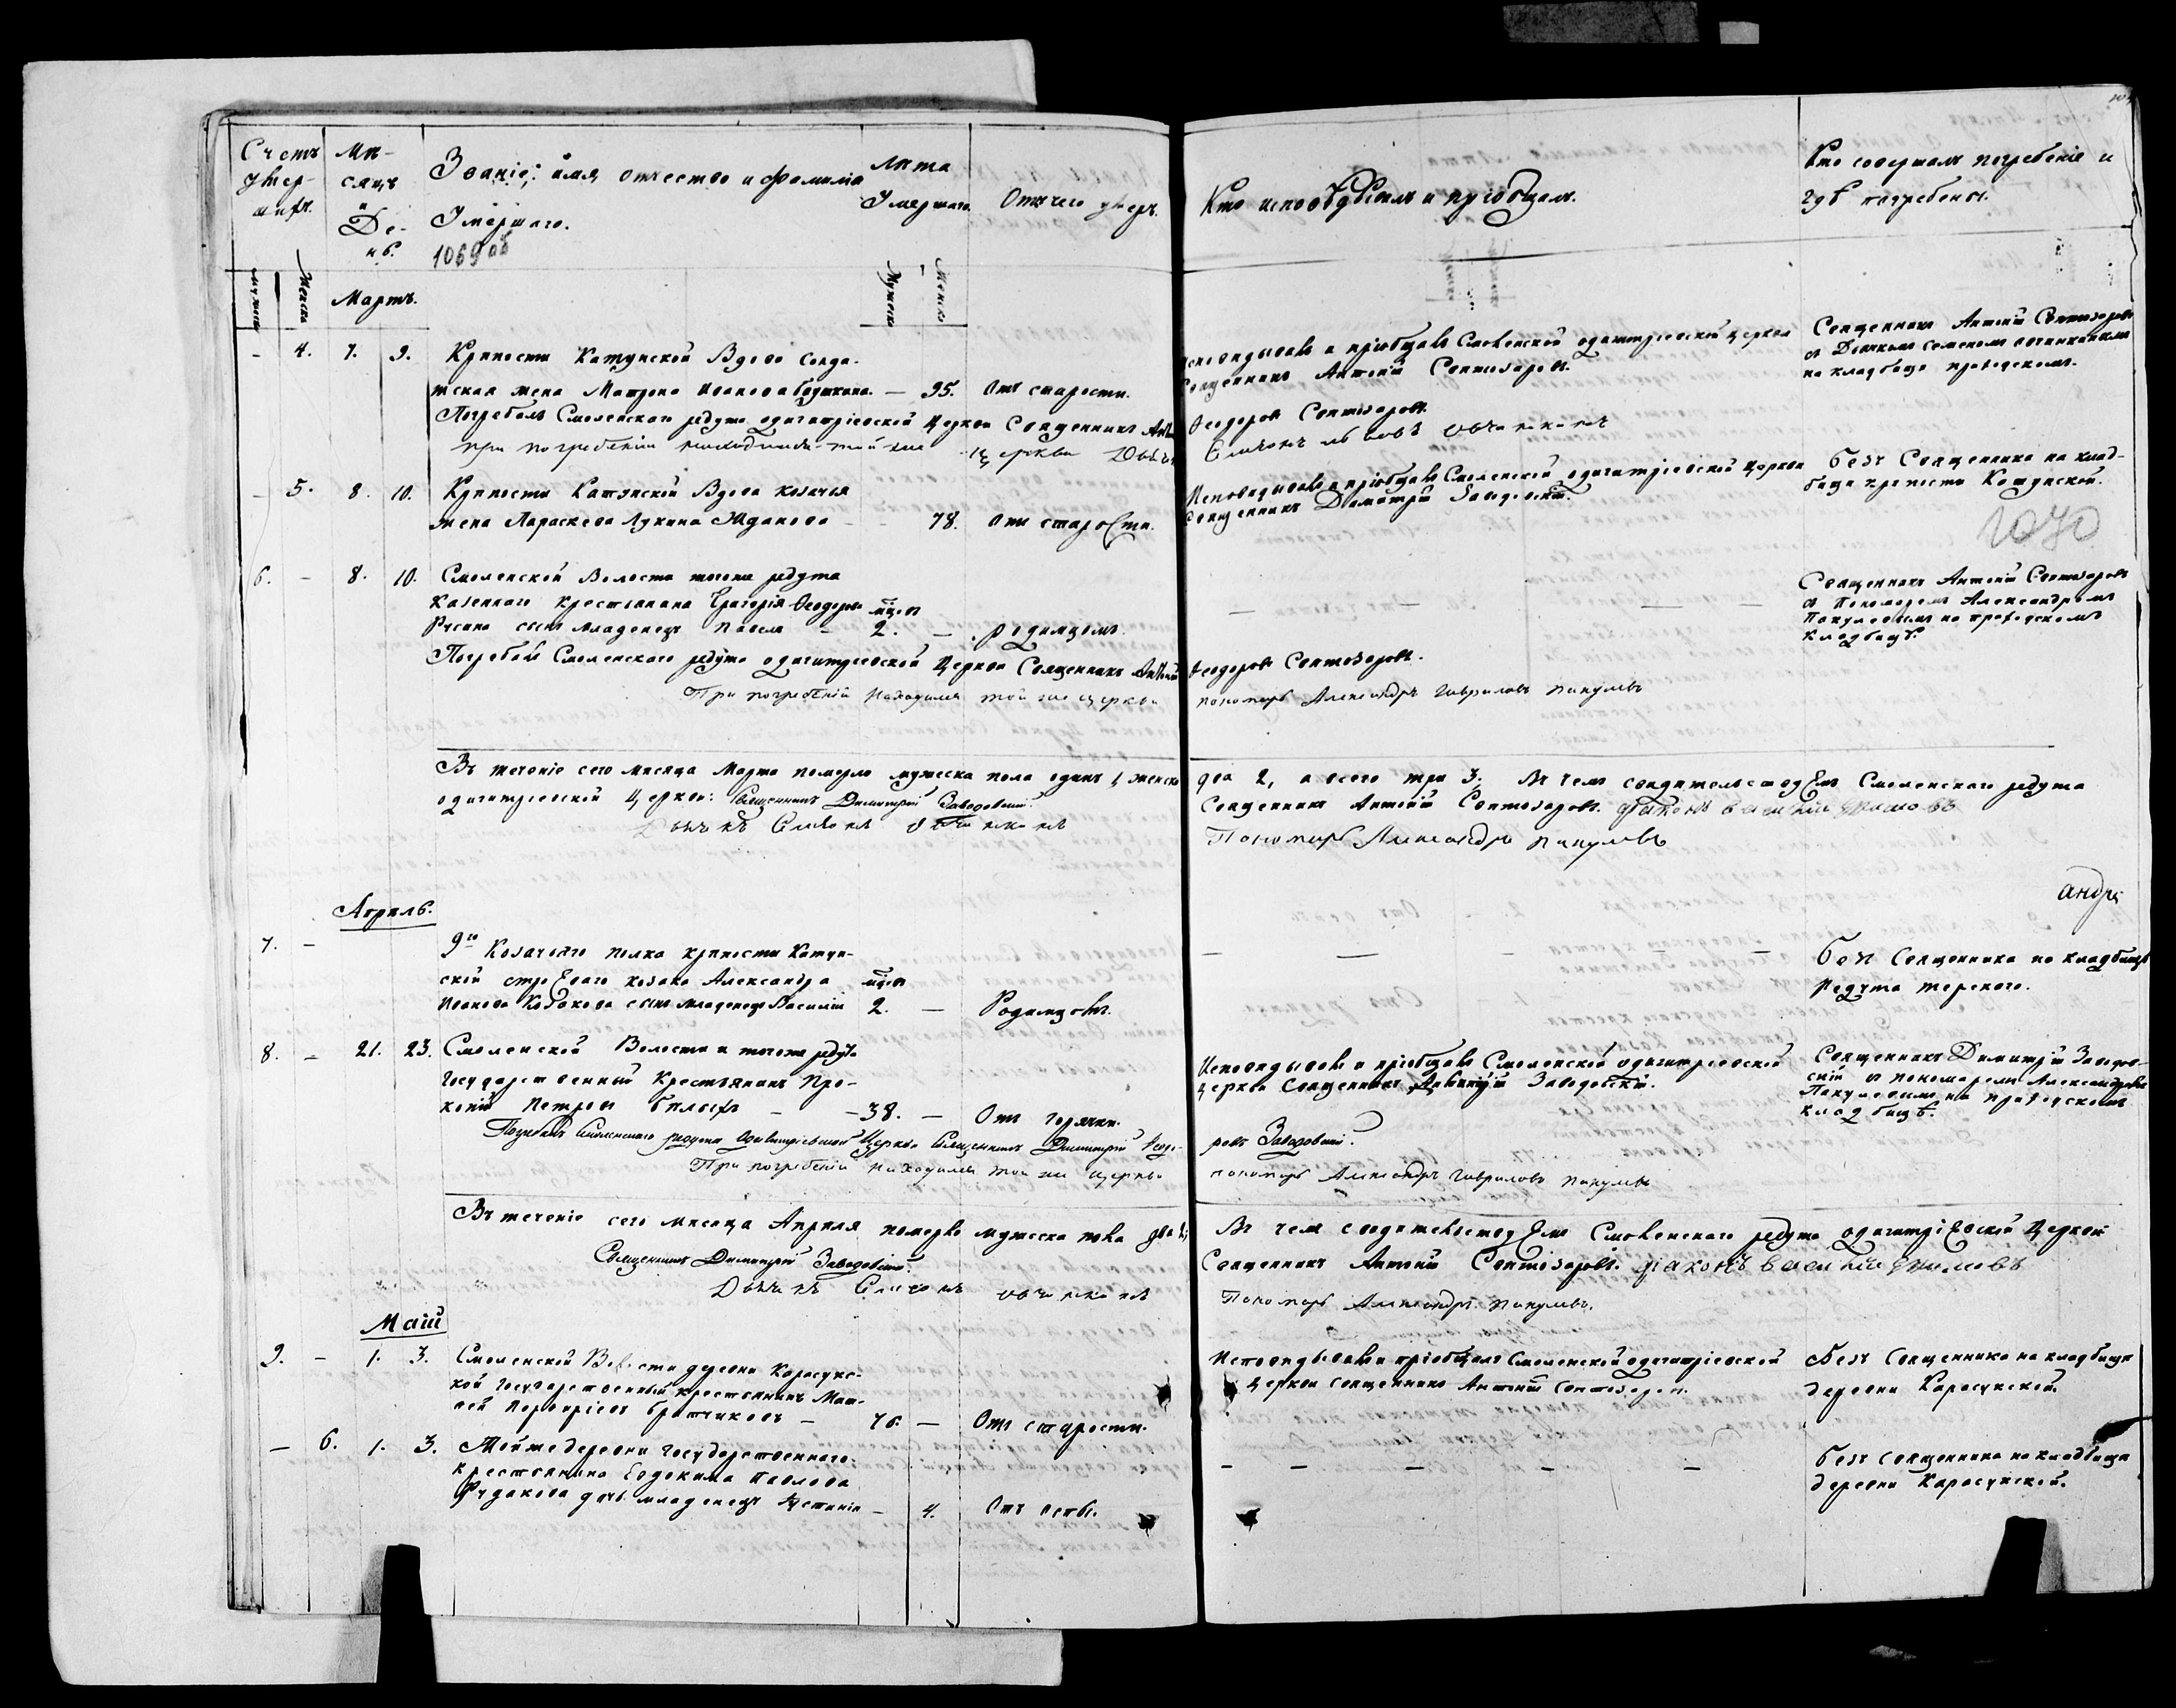 Счетъ умер-шихъ.
Мѣ-сяцъ и Де-нь.
Званіе, имя отчество и фамилія
Умершаго.
1069 об
Лѣта
Умершаго.
Отчего умеръ.
Кто исповѣдывалъ и пріобщалъ.
Кто совершалъ погребеніе и
гдѣ погребены.
Мужеска
Женска
Мартъ.
Мужеска
Женска
– 4. 7. 9. Крѣпости Катунской Вдова Солда-
тская жена Матрона Иванова – 95. Отъ старости.
Исповѣдывалъ и пріобщалъ Смоленской одигитріевской церкви
Священникъ Антоній
Священникъ Антоній
съ Дьячкомъ Семеномъ Овчинкинымъ
на кладбище приходскомъ.
Погребалъ Смоленскаго редута одигитріевской Церкви Священникъ
Ѳеодоровъ
при погребеніи находился той же церкви Дьячекъ
– 5. 8. 10. Крѣпости Катунской Вдова козачья
жена Параскева Лукина Жданова – 78. Отъ старости.
Исповѣдывалъ и пріобщалъ Смоленской одигитріевской церкви
Священникъ Димитрій Заводовскій.
Безъ Священника на клад-
бище крѣпости Катунской.
1070
6. – 8. 10. Смоленской Волости тогоже редута
казеннаго крестьянина Григорія Ѳеодорова мѣсяц
сынъ младенецъ Павелъ – 2. – родимцомъ.
Священникъ Антоній
съ Пономаремъ Александромъ
на приходскомъ
кладбищѣ.
Погребалъ Смоленскаго редута одигитріевской Церкви Священникъ Антоній
Ѳеодоровъ
При погребеніи находился той же церкви
пономарь Александръ Гавриловъ
Въ теченіе сего мѣсяца Марта померло мужеска пола одинъ 1, женска
два 2, а всего три 3. Въ чемъ свидѣтельствуемъ Смоленскаго редута
одигитріевской Церкви: Священникъ Димитрій Заводовскій.
Священникъ Антоній
Дьячекъ Симеонъ Овчинкинъ
Пономарь Александръ
андрі
Апрѣль.
7. – 9го Козачьяго полка крѣпости Катун-
ской строеваго козака Александра мѣсяц
Иванова Козакова сынъ младенецъ Василій 2. – Родимцомъ.
Безъ Священника на кладбищѣ
Редута Терскаго.
8. – 21. 23. Смоленской Волости и тогоже редута
Государственный Крестьянинъ Про-
копій Петровъ Бѣлыхъ – 38. – Отъ горячки.
Исповѣдывалъ и пріобщалъ Смоленской одигитріевской
церкви Священникъ Димитрій Заводовскій.
Священникъ Димитрій Заводов-
скій съ пономаремъ Александромъ
на приходскомъ
кладбищѣ.
Погребалъ Смоленскаго редута Одигитріевской Церкви Священникъ Димитрій Ѳеодо-
ровъ Заводовскій.
При погребеніи находился той же церкви
пономарь Александръ Гавриловъ
Въ теченіе сего мѣсяца Апрѣля померло мужеска пола два 2,
Въ чемъ свидѣтельствуемъ Смоленскаго редута одигитріевской Церкви
Священникъ Димитрій Заводовскій.
Священникъ Антоній
Дьячекъ Симеонъ Овчинкинъ
Пономарь Александръ
Маій
9. – 1. 3. Смоленской Волости деревни Карасукс-
кой Государственный крестьянинъ Мат-
вей Братчиковъ – 76. – Отъ старости.
Исповѣдывалъ и пріобщалъ Смоленской одигитріевской
церкви священникъ Антоній
Безъ Священника на кладбище
деревни Карасукской.
– 6. 1. 3. Тойже деревни государственнаго
крестьянина Евдокима Павлова
Рудакова дочь младенецъ Устинія – 4. Отъ оспы.
Безъ священника на кладбище
деревни Карасукской.